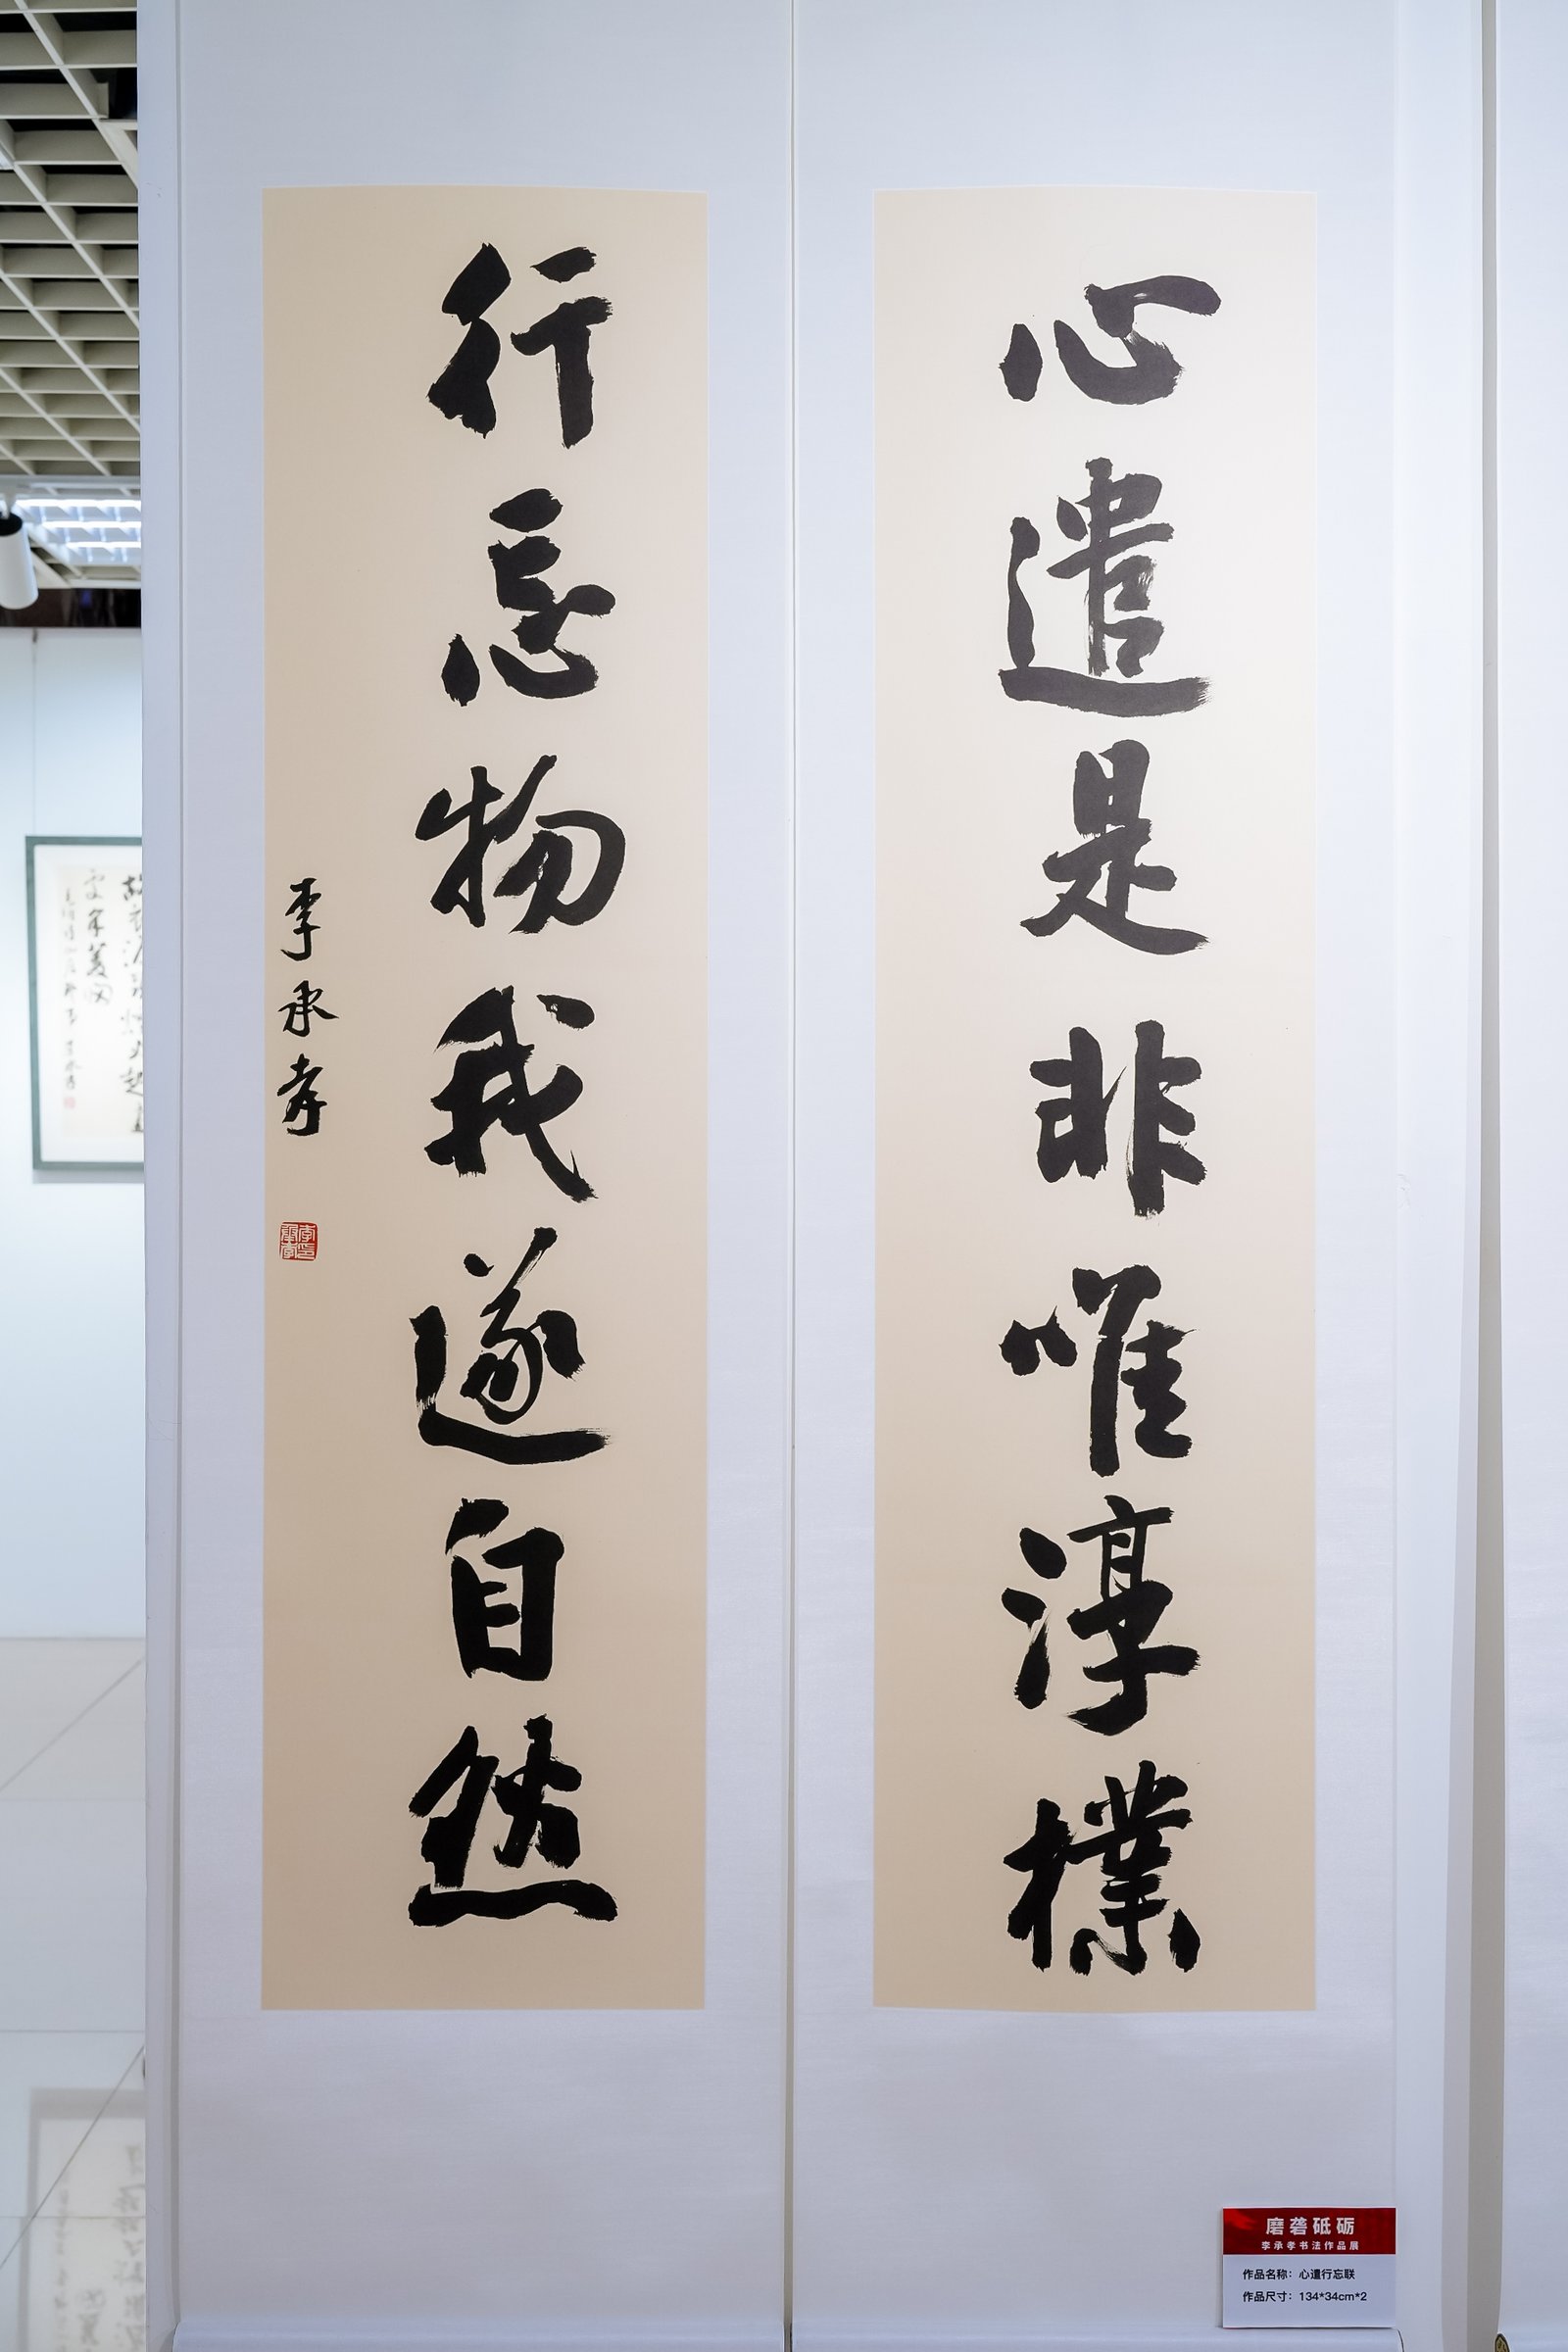 心遣是非唯淳樸
行忘物我遂自然
李承孝
磨砻砥砺
李承孝书法作品展
作品名称：心遣行忘联
作品尺寸：134*34cm*2